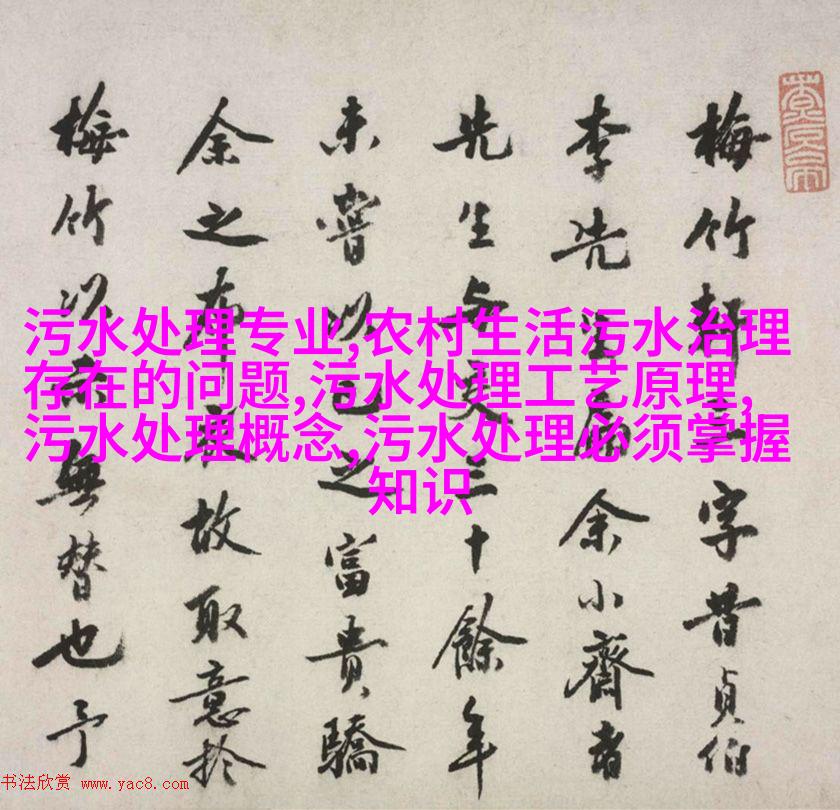 污水处理专业,农村生活污水治理
存在的问题,污水处理工艺原理,
污水处理概念,污水处理必须掌握
知识
梅竹軒三字昔貞伯
李先生余小齋
先生与三十餘年
未嘗以己之富貴驕
余之故取意於
梅竹以無替也予
书法欣赏 www.yac8.com